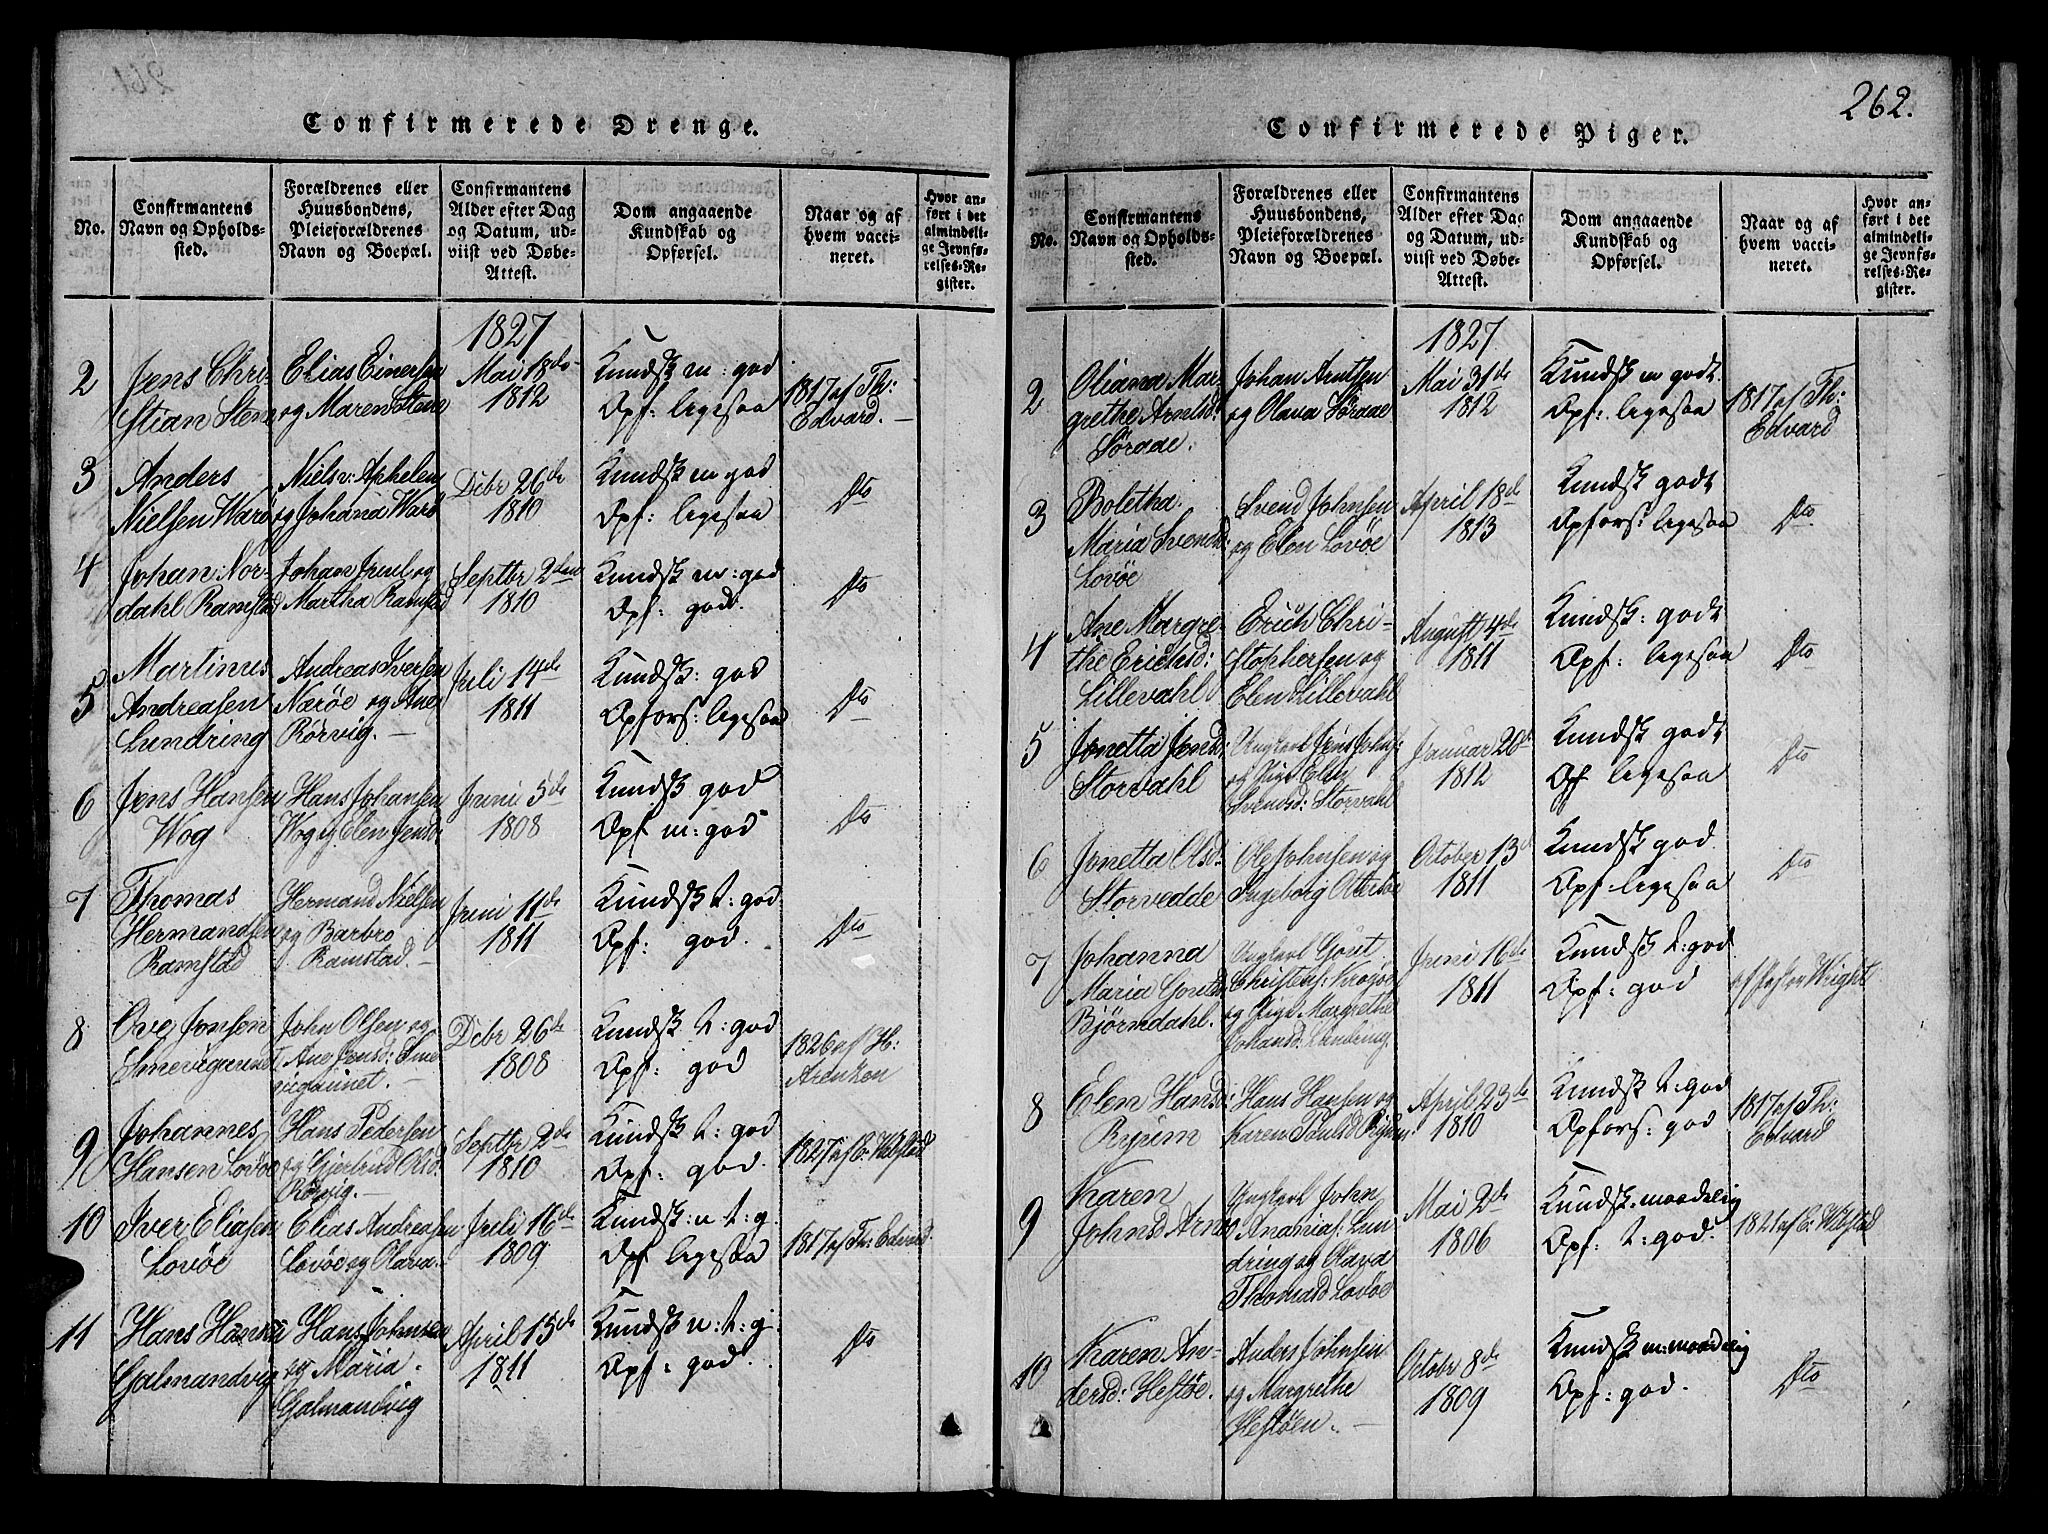 262.
Confirmerede Drenge.
No.
Confirmantens
Navn og Opholds-
sted.
Forældrenes eller
Huusbondens,
Pleieforældrenes
Navn og Boepæl.
Confirmantens
Alder efter Dag
og Datum, ud-
viist ved Døbe-
Attest.
Dom angaaende
Kundskab og
Opførsel.
Naar og af
hvem vacci-
neret.
Hvor an-
ført i det
almindeli-
ge Jevnfø-
relses-Re-
gister.
1827
2
Jens Chri-
stian Steen
Elias Einersen
og Maren Steen
Mai 18de
1812
Kundsk m: god
Opf: legesaa
1817 af Th:
Edvard. -
3
Anders
Nielsen Warö
Niels v: Aphelen
og Johana Warö
Debr 26de
1810
Kundsk m god
Opf: legesaa
Dto
4
Johan Nor-
dahl Ramstad
Johan Juul og
Martha Ramstad
Septbr 2den
1810
Kundsk m: god
Opf: god.
Dto
5
Martinus
Andreasen
Lundring
Andreas Iversen
Naröe og Ane
Rörvig. -
Juli 14de
1811
Kundsk: god
Opfors: legesaa
Dto
6
Jens Hansen
Wog
Hans Johansen
Wog og Elen Jensd:
Juni 5de
1808
Kundsk god
Opf m: god
Dto
7
Thomas
Hermandsen
Ramstad
Hermand Nielsen
og Barbro
Ramstad. -
Juni 11de
1811
Kundsk t: god
Opf: god.
Dto
8
Ove Jonsen
Smevigaunet
John Olsen og
Ane Jensd: Sme
vigaunet. -
Debr 26de
1808
Kundsk t: god
Opf: god
1826 af H:
Arentzen
9
Johannes
Hansen Lovöe
Hans Pedersen
og Gjertrud Olsd:
Rörvig. -
Septbr 2de
1810
Kundsk t: god
Opf: god.
1827 af C: Wibstad
10
Iver Eliasen
Lovöe
Elias Andreasen
Lovöe og Olava. -
Juli 16de
1809
Kundsk: n t: g.
Opf legesaa
1817 af Th: Edvard.
11
Hans Hansen
Galmandvig
Hans Johnsen
og Maria
Galmandvig
April 15de
1811
Kundsk n: t: g.
Opf: god.
Dto
Confirmerede Piger.
No.
Confirmantens
Navn og Opholds-
sted.
Forældrenes eller
Huusbondens,
Pleieforældrenes
Navn og Boepæl.
Confirmantens
Alder efter Dag
og Datum, ud-
viist ved Døbe-
Attest.
Dom angaaende
Kundskab og
Opførsel.
Naar og af
hvem vacci-
neret.
Hvor an-
ført i det
almindeli-
ge Jevnfø-
relses-Re-
gister.
1827
2
Oliana Mar-
grethe Arntsd:
Söraae.
Johan Arntsen
og Olava Söraae
Mai 31de
1812
Kundsk m godt
Opf: legesaa
1817 af Th:
Edvard
3
Boletha
Maria Svensd:
Lovöe
Svend Johnsen
og Elen Lovöe
April 18de
1813
Kundsk godt
Opfors: legesaa
Dto
4
Ane Margre-
the Erichsd:
Lillevahl
Erich Chri-
stophersen og
Elen Lillevahl
August 4de
1811
Kundsk: godt
Opf: legesaa
Dto
5
Jonetta Jensd:
Storvahl
Ungkarl Jens Johns:
og Pige Elen
Svendsd: Storvahl
Januar 20de
1812
Kundsk godt
Opf legesaa
Dto
6
Jonetta Olsd:
Storvedde
Ole Johnsen og
Ingeborg Otterböe
October 13de
1811
Kundsk god
Opf: legesaa
Dto
7
Johanna
Maria Goretsd:
Björndahl.
Ungkarl Goret
Christens: Krogöe
og Pige Margrethe
Johansd: Lundring.
Juni 16de
1811
Kundsk t: god
Opf: god
af Wright
8
Elen Hansd:
Ryum
Hans Hansen og
Karen Poulsd Ryum:
April 23de
1810
Kundsk t: god
Opfors: god
1817 af Th:
Edvard
9
Karen
Johnsd Arnö
Ungkarl John
Ananias: Lun
dring og Olava
Thomasd Lovöe
Mai 2de
1806
Kundsk: maadelig
Opf: t: god.
1821 af C: Wibstad
10
Karen An-
dersd: Hestöe.
Anders Johnsen
og Margrethe
Hestöen. -
Octobr 8de
1809
Kundsk m: maadelig
Opf: god.
Dto